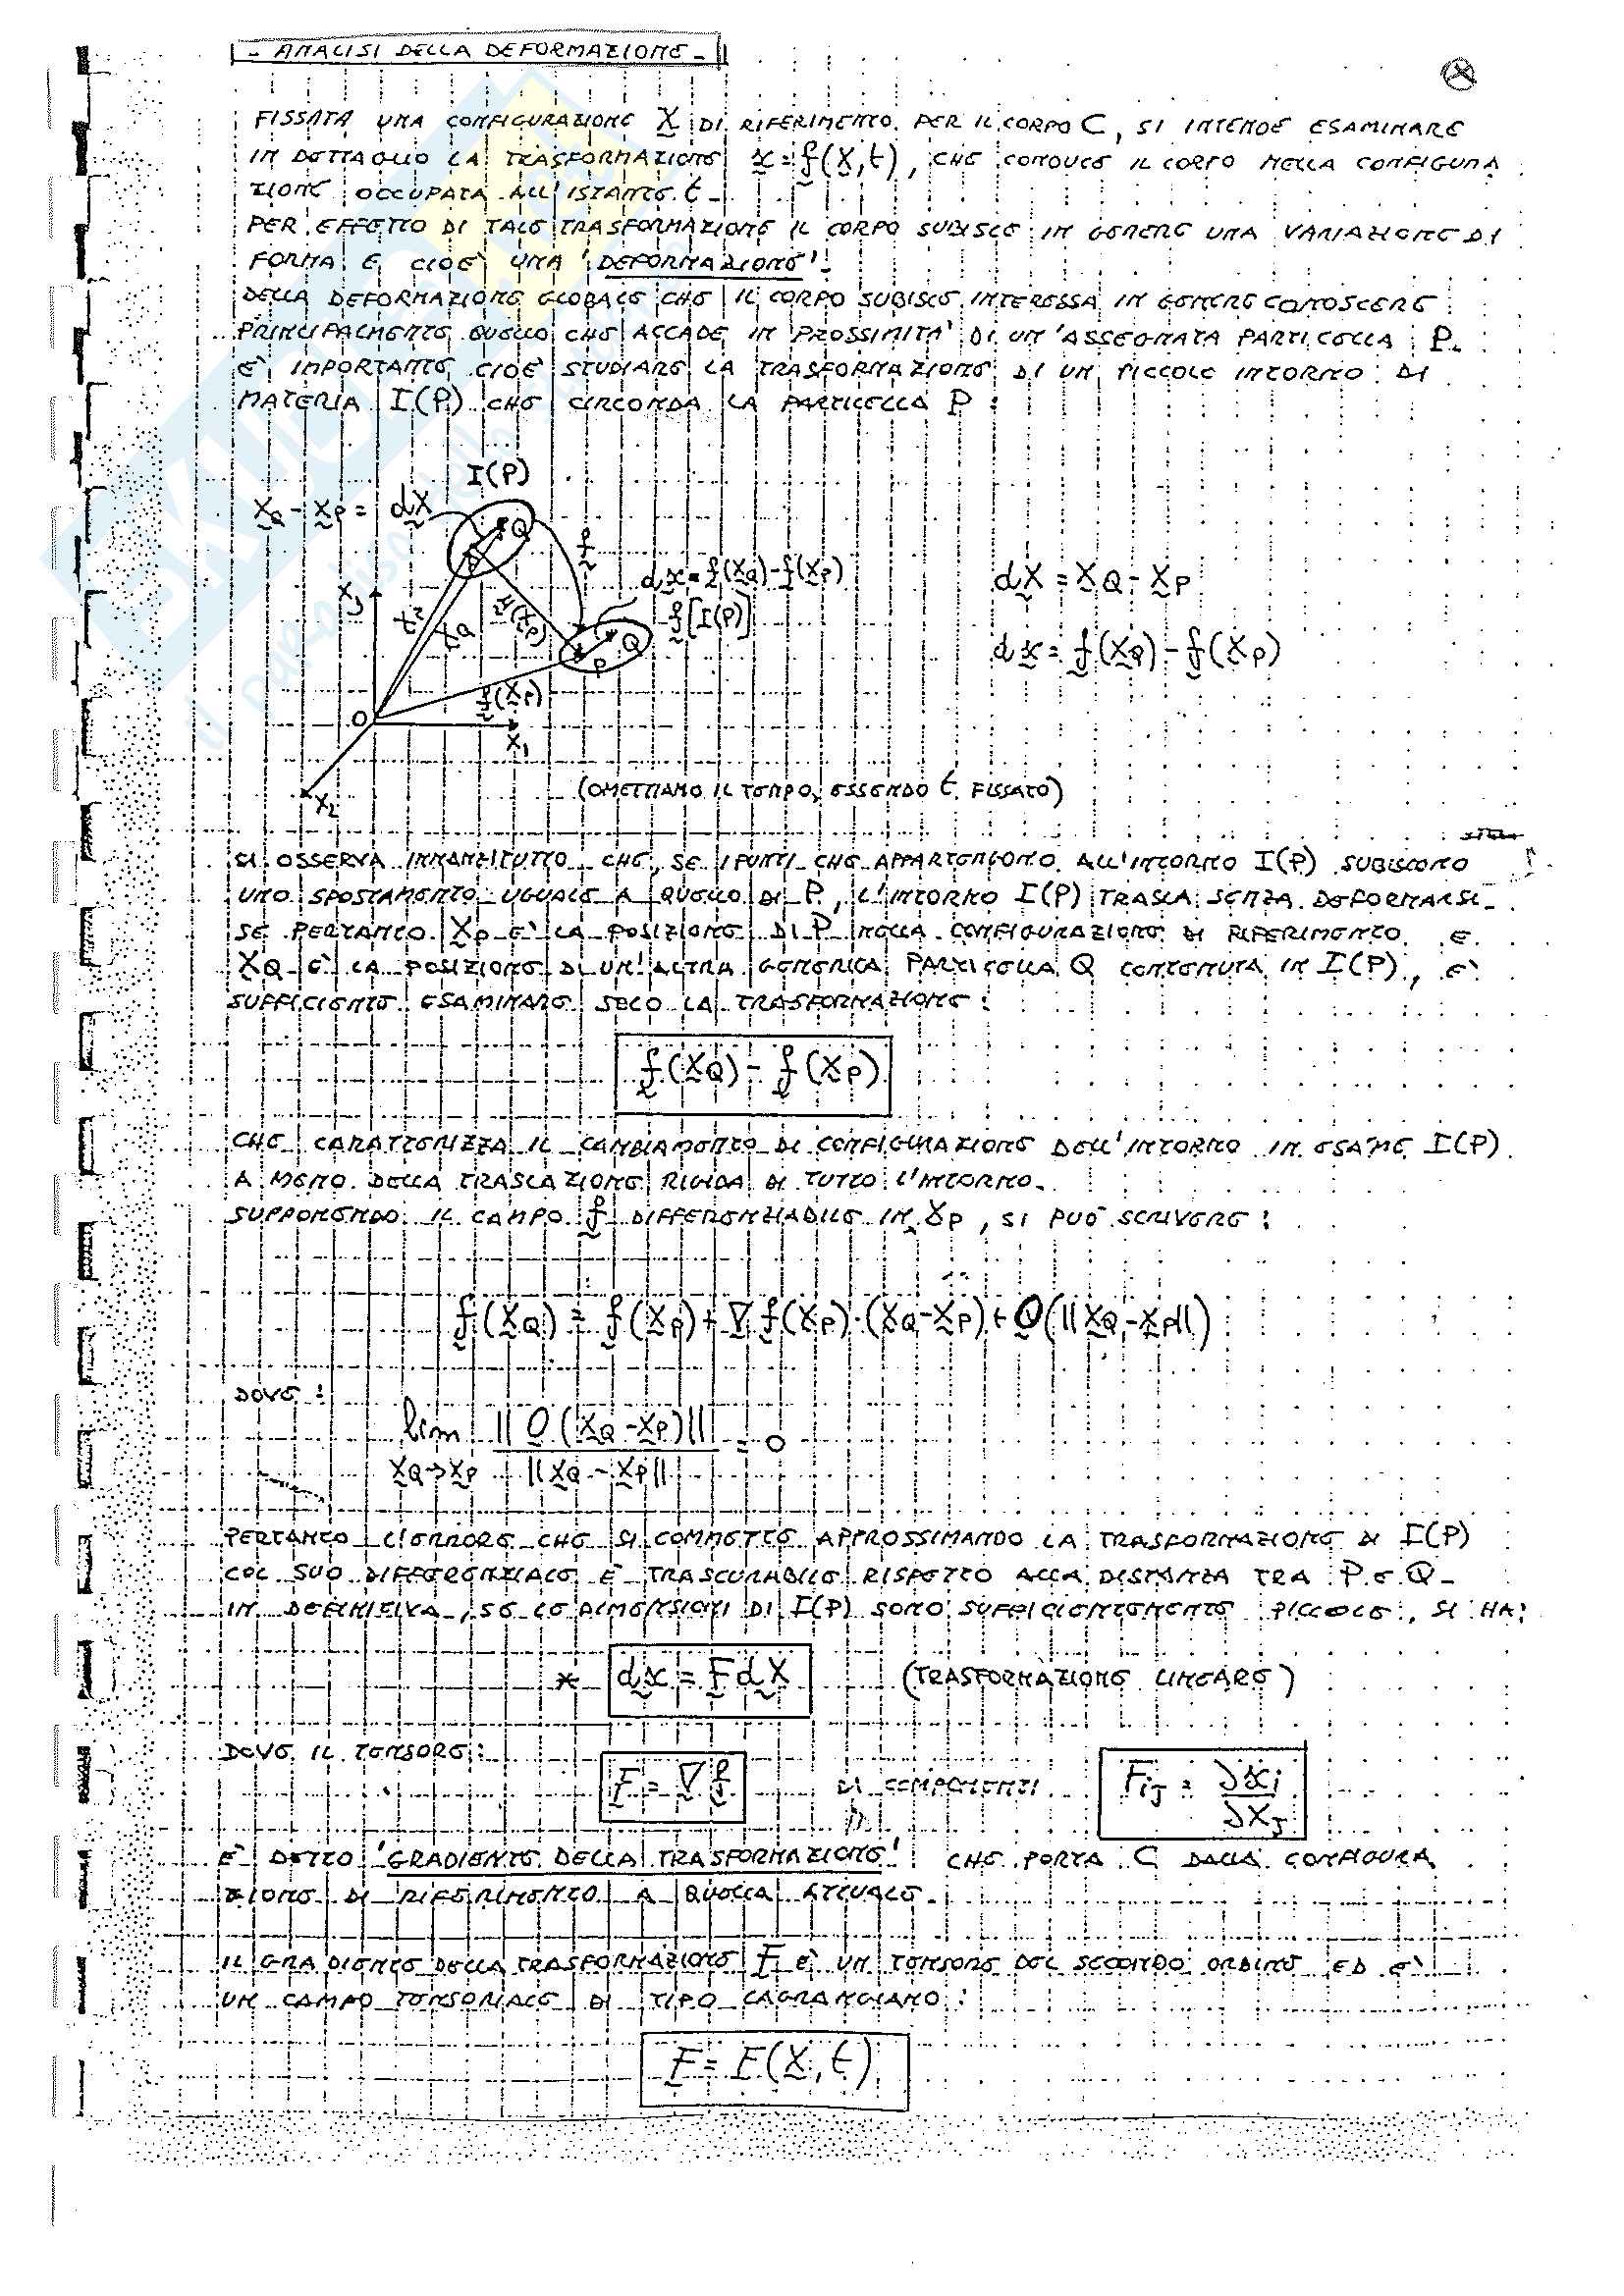 - ANALISI DELLA DEFORMAZIONE -
FISSATA UNA CONFIGURAZIONE X DI RIFERIMENTO PER IL CORPO C, SI INTENDE ESAMINARE
IN DETTAGLIO LA TRASFORMAZIONE x = f(X,t), CHE CONDUCE IL CORPO NELLA CONFIGURA
ZIONE OCCUPATA ALL'ISTANTE t -
PER EFFETTO DI TALE TRASFORMAZIONE IL CORPO SUBISCE IN GENERE UNA VARIAZIONE DI
FORMA E CIOÈ UNA 'DEFORMAZIONE'-
DELLA DEFORMAZIONE GLOBALE CHE IL CORPO SUBISCE INTERESSA IN GENERE CONOSCERE
PRINCIPALMENTE QUELLO CHE ACCADE IN PROSSIMITA' DI UN'ASSEGNATA PARTICELLA P.
E' IMPORTANTE CIOÈ STUDIARE LA TRASFORMAZIONE DI UN PICCOLO INTORNO DI
MATERIA I(P) CHE CIRCONDA LA PARTICELLA P :
I(P)
X_Q - X_P = dX
Q
f
dx = f(X_Q) - f(X_P)
dX = X_Q - X_P
X_3
X_Q
u(X_P)
f[I(P)]
P
Q
dx = f(X_Q) - f(X_P)
f(X_P)
O
X_1
X_2
(OMETTIAMO IL TEMPO, ESSENDO t FISSATO)
SI OSSERVA INNANZITUTTO CHE, SE I PUNTI CHE APPARTENGONO ALL'INTORNO I(P) SUBISCONO
UNO SPOSTAMENTO UGUALE A QUELLO DI P, L'INTORNO I(P) TRASLA SENZA DEFORMARSI-
SE PERTANTO X_P E' LA POSIZIONE DI P NELLA CONFIGURAZIONE DI RIFERIMENTO E
X_Q È LA POSIZIONE DI UN'ALTRA GENERICA PARTICELLA Q CONTENUTA IN I(P), E'
SUFFICIENTE ESAMINARE SOLO LA TRASFORMAZIONE :
f(X_Q) - f(X_P)
CHE CARATTERIZZA IL CAMBIAMENTO DI CONFIGURAZIONE DELL'INTORNO IN ESAME I(P)
A MENO DELLA TRASLAZIONE RIGIDA DI TUTTO L'INTORNO-
SUPPONENDO IL CAMPO f DIFFERENZIABILE IN X_P, SI PUÒ SCRIVERE :
f(X_Q) = f(X_P) + ∇f(X_P)·(X_Q-X_P) + O(||X_Q-X_P||)
DOVE :
lim ||O(X_Q-X_P)|| / ||X_Q-X_P|| = 0
X_Q→X_P
PERTANTO L'ERRORE CHE SI COMMETTE APPROSSIMANDO LA TRASFORMAZIONE DI I(P)
COL SUO DIFFERENZIALE È TRASCURABILE RISPETTO ALLA DISTANZA TRA P E Q-
IN DEFINITIVA, SE LE DIMENSIONI DI I(P) SONO SUFFICIENTEMENTE PICCOLE, SI HA:
* dx = F dX (TRASFORMAZIONE LINEARE)
DOVE IL TENSORE :
F = ∇f DI COMPONENTI F_iJ = ∂x_i / ∂X_J
E' DETTO 'GRADIENTE DELLA TRASFORMAZIONE' CHE PORTA C DALLA CONFIGURA
ZIONE DI RIFERIMENTO A QUELLA ATTUALE.
IL GRADIENTE DELLA TRASFORMAZIONE F E' UN TENSORE DEL SECONDO ORDINE ED E'
UN CAMPO TENSORIALE DI TIPO LAGRANGIANO :
F = F(X,t)